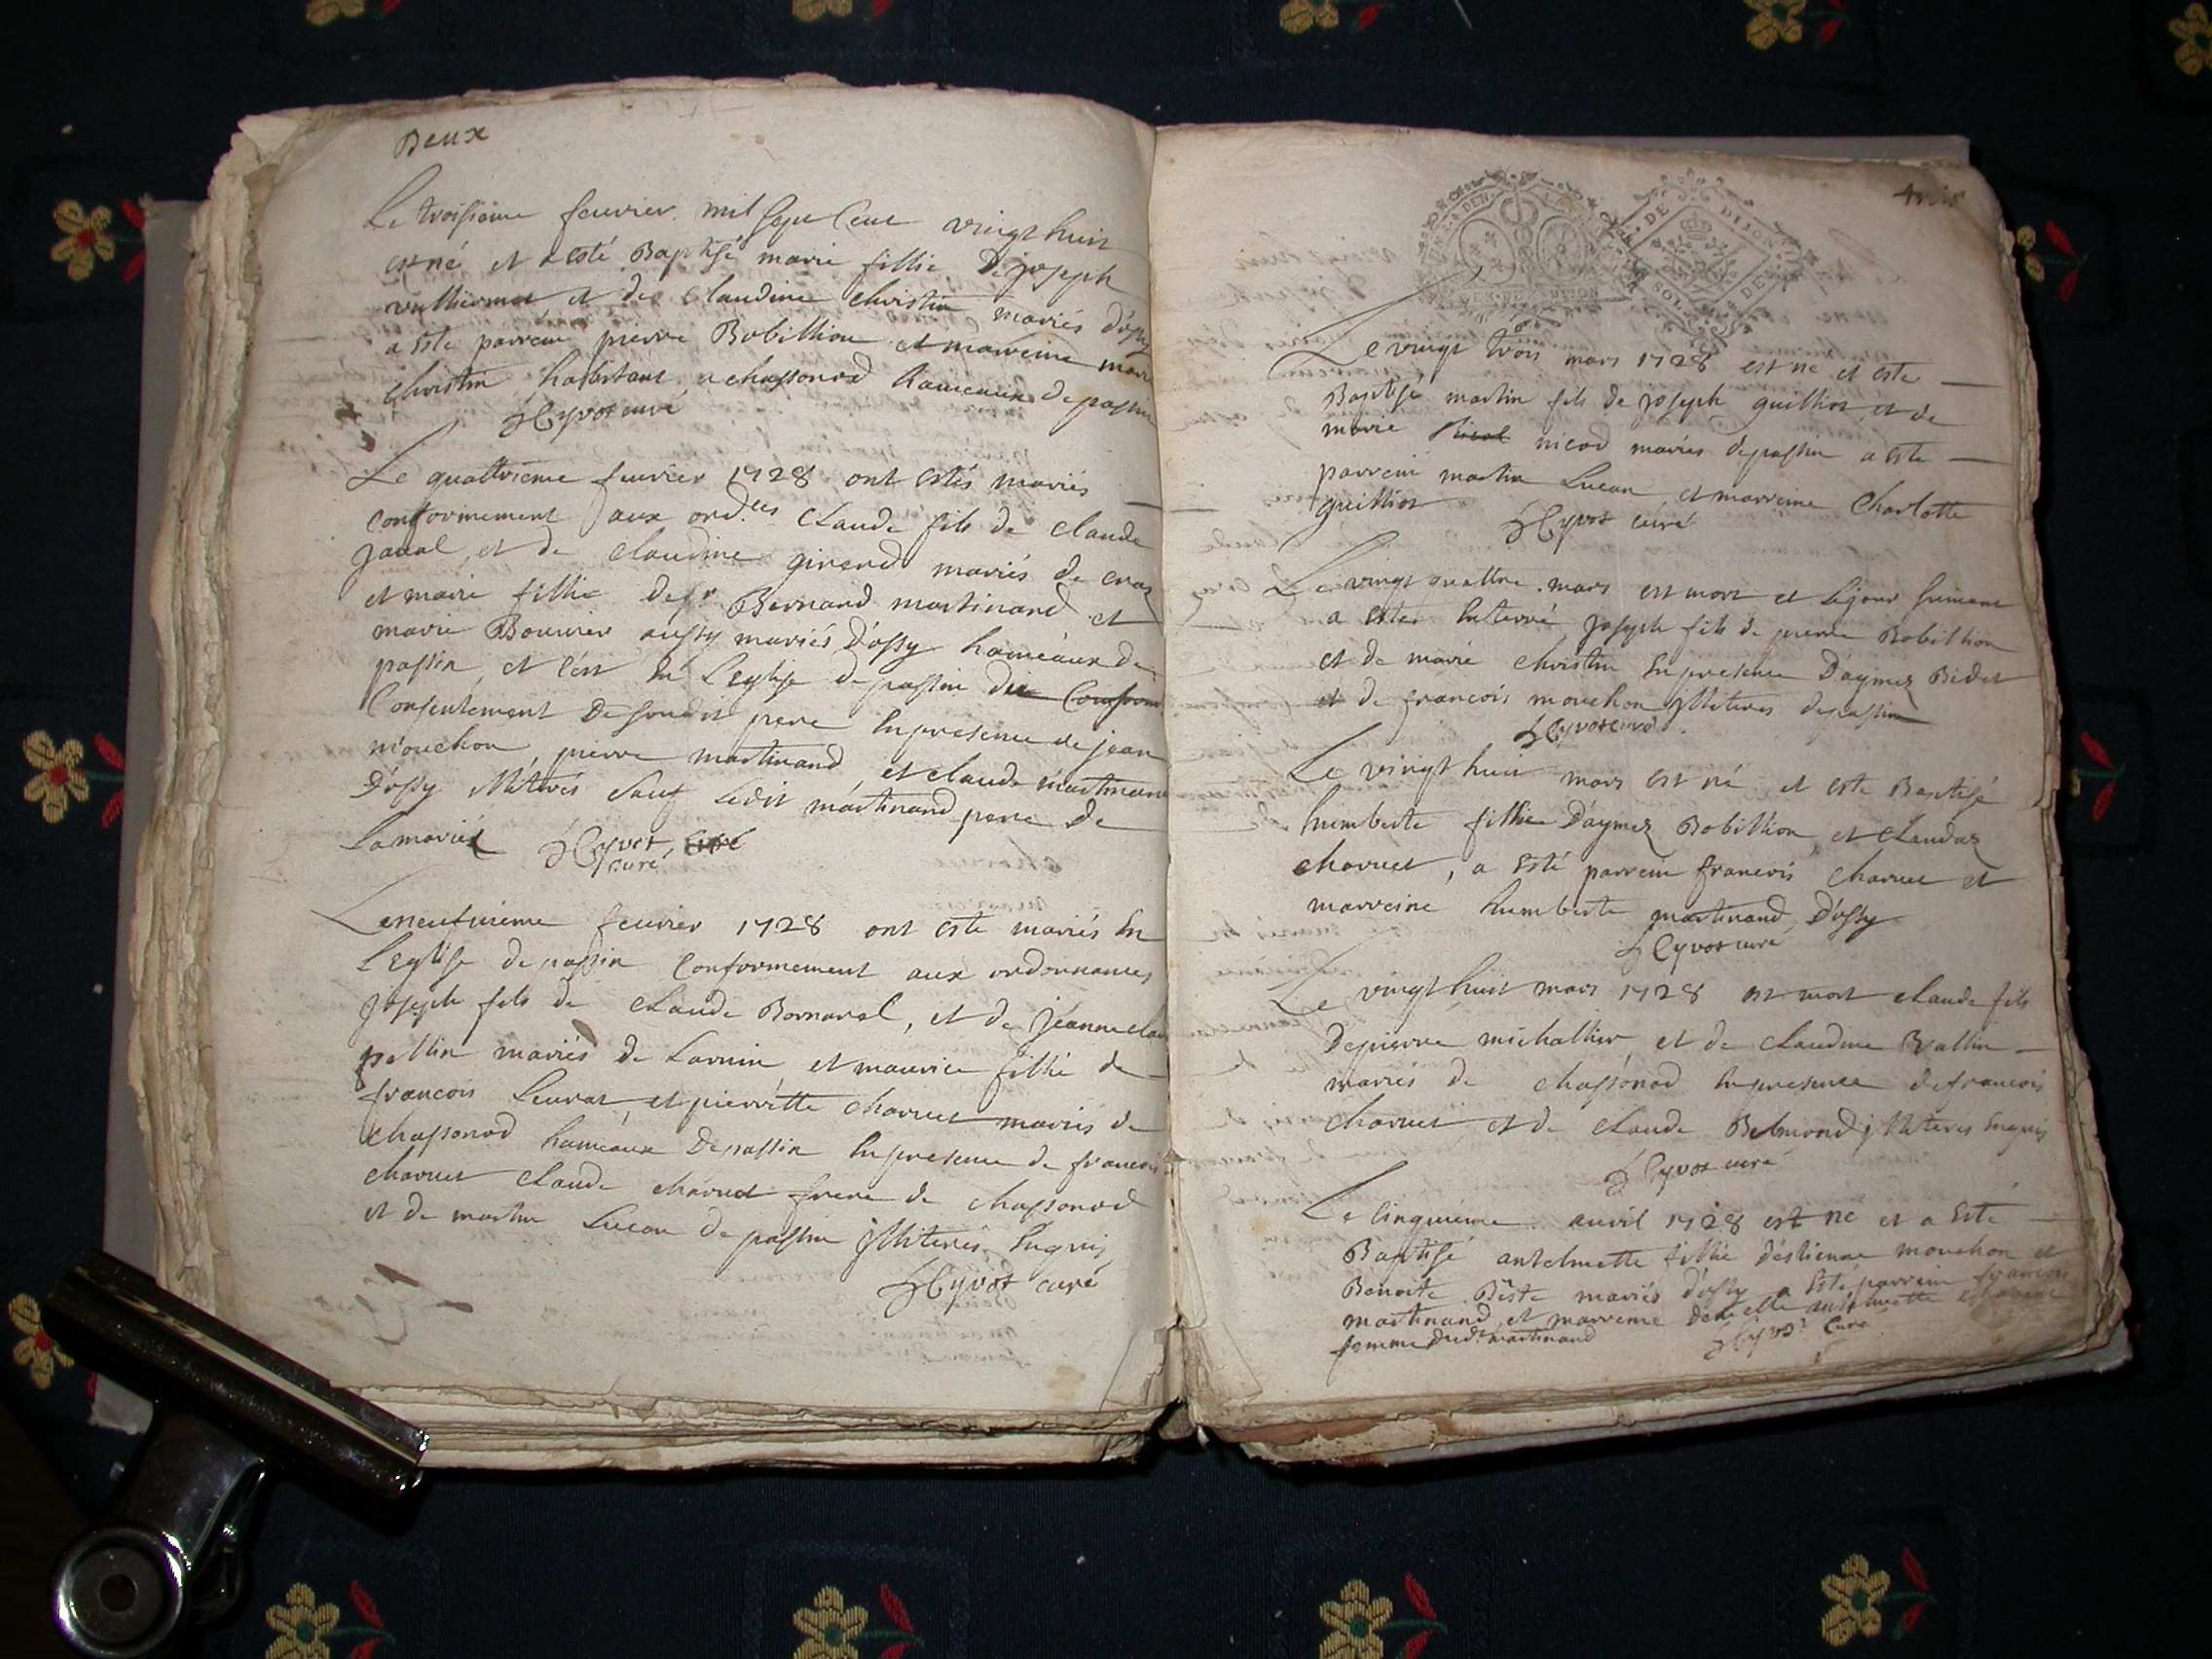 Deux
Le troisieme feurier mil sept Cent vingt huit
est né et a esté Baptisé marie fillie De joseph
vulliermet et de Claudine christin mariés d'ossy
a este parrein pierre Bobillion et marreine marie
christin habitant a chassonod hameaux de passin
Hyvot curé
Le quattrieme feurier 1728 ont estés mariés
conformement aux ord.ces Claude fils de claude
javal, et de claudine girerd mariés de craz
et marie fillie de sr Bernard martinand et
marie Bouvier aussy mariés d'ossy hameaux de
passin, et c'est en l'Eglise de passin du
Consentement de sondit pere en presence de jean
mouchon, pierre martinand, et claude martinand
D'ossy illiterés sauf ledit martinand pere de
la mariée Hyvot, curé
curé
Le neufuieme feurier 1728 ont este mariés en
l'Eglise de passin Conformement aux ordonnances
joseph fils de claude Bornarel, et de jeanne clau
pellin mariés de Larnin et maurice fillie de
francois Leurat, et pierrette charuet mariés de
chassonod hameaux de passin en presence de francois
charuet claude charuet frere de chassonod
et de martin Lucan de passin illiterés enquis
Hyvot curé
trois
DE DIJON
Le vingt trois mars 1728 est né et este
Baptisé martin fils de joseph guilliot et de
marie nicod mariés de passin a este
parrein martin Lucan, et marreine Charlotte
guilliot Hyvot curé
Le vingt quattre mars est mort et le jour suivant
a estes enterré joseph fils de pierre Bobillion
et de marie christin en presence D'aymez Bidet
et de francois mouchon illiteres de passin
Hyvot curé
Le vingt huit mars est né et este Baptisé
humberte fillie D'aymez Bobillion et claudaz
charuet, a esté parrein francois charuet et
marreine humberte martinand, D'ossy
Hyvot curé
Le vingt huit mars 1728 est mort claude fils
de pierre michallier et de claudine Ballin
mariés de chassonod en presence de francois
charuet et de claude Belmond illiteres enquis
Hyvot curé
Le cinquieme auril 1728 est né et a esté
Baptisé antelmette fillie d'estienne mouchon et
Benoite Biste mariés d'ossy a esté parrein francois
martinand, et marreine demelle antelmette
femme dudt martinand Hyvot curé